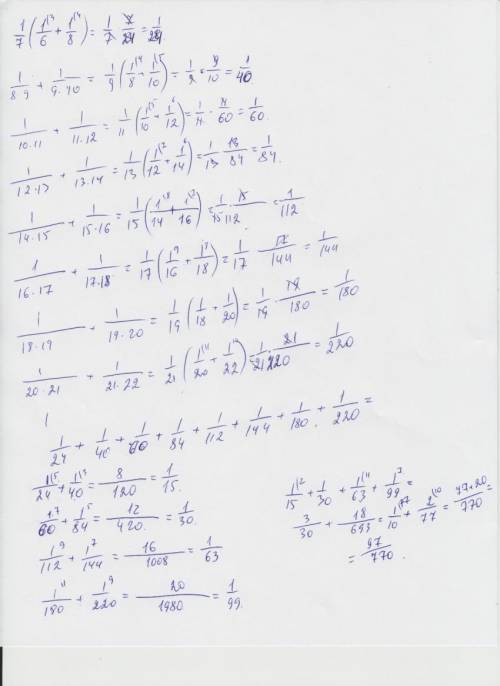 1/7 (1/6 + 1/8) = 1/7 · 7/24 = 1/24.
1/8·9 + 1/9·10 = 1/9 (1/8 + 1/10) = 1/9 · 9/40 = 1/40.
1/10·11 + 1/11·12 = 1/11 (1/10 + 1/12) = 1/11 · 11/60 = 1/60.
1/12·13 + 1/13·14 = 1/13 (1/12 + 1/14) = 1/13 · 13/84 = 1/84.
1/14·15 + 1/15·16 = 1/15 (1/14 + 1/16) = 1/15 · 15/112 = 1/112
1/16·17 + 1/17·18 = 1/17 (1/16 + 1/18) = 1/17 · 17/144 = 1/144
1/18·19 + 1/19·20 = 1/19 (1/18 + 1/20) = 1/19 · 19/180 = 1/180
1/20·21 + 1/21·22 = 1/21 (1/20 + 1/22) = 1/21 · 21/220 = 1/220
1/24 + 1/40 + 1/60 + 1/84 + 1/112 + 1/144 + 1/180 + 1/220 =
1/24 + 1/40 = 8/120 = 1/15.
1/60 + 1/84 = 12/420 = 1/30.
1/112 + 1/144 = 16/1008 = 1/63
1/180 + 1/220 = 20/1980 = 1/99.
1/15 + 1/30 + 1/63 + 1/99 =
3/30 + 18/693 = 1/10 + 2/77 = 77+20/770 =
= 97/770.